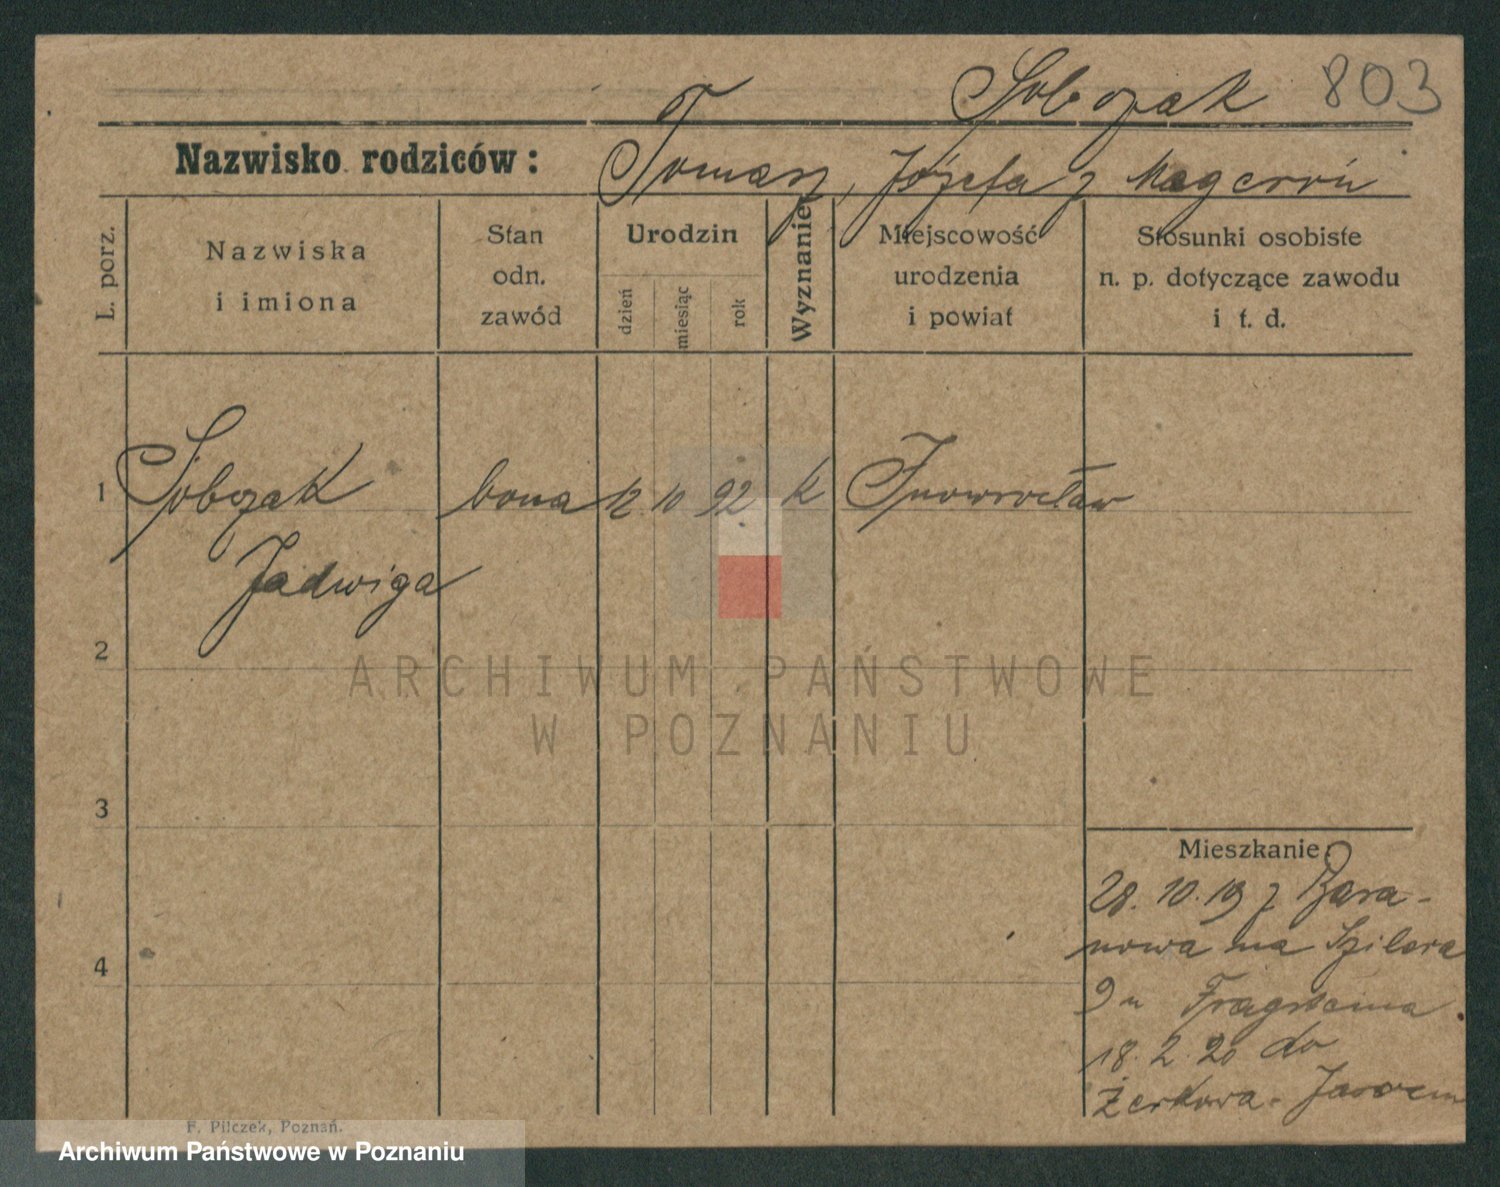 Sobczak 803
Nazwisko rodziców: Tomasz, Józefa z
L. porz.
Nazwiska
i imiona
Stan
odn.
zawód
Urodzin
dzień
miesiąc
rok
Wyznanie
Miejscowość
urodzenia
i powiat
Stosunki osobiste
n. p. dotyczące zawodu
i t. d.
1 Sobczak bona 12 10 92 k Inowrocław
Jadwiga
2
ARCHIWUM PAŃSTWOWE
W POZNANIU
3
4
Mieszkanie:
28. 10. 19 z Bara-
nowa na Szilera
9 u
18. 2. 20 do
Żerkowa - Jarocin
F. Pilczek, Poznań.
Archiwum Państwowe w Poznaniu